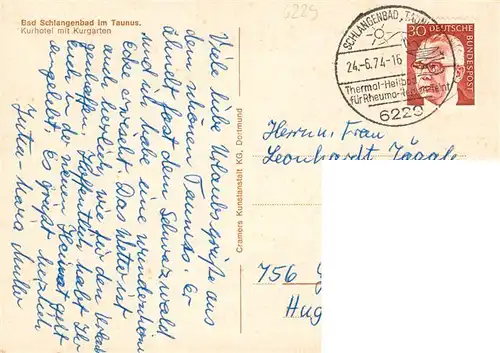 6229
Bad Schlangenbad im Taunus.
Kurhotel mit Kurgarten
Viele liebe Urlaubsgrüße aus
dem schönen Taunus. Er
ähnelt fast dem Schwarzwald
und ich habe eine
Das Wetter ist
auch herrlich, wie für den Urlaub
geschaffen. Hoffentlich habt Ihr
Euch in der neuen Heimat gut
eingelebt. Es grüßt herzlich
Jutta-Maria Müller
Cramers Kunstanstalt KG, Dortmund
SCHLANGENBAD, TAUNUS
24.-6.74-16
Thermal-Heilbad
für Rheuma
6229
30 DEUTSCHE
BUNDESPOST
Herrn u. Frau
Leonhardt
756